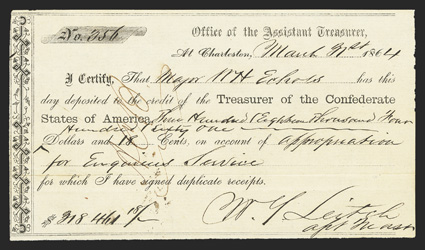 No. 356
Office of the Assistant Treasurer,
At Charleston, March 31st 1864
I Certify, That Major W H Echols has this
day deposited to the credit of the Treasurer of the Confederate
States of America, Two Hundred Eighteen Thousand Four
Hundred Sixty one
Dollars and 18 Cents, on account of appropriation
for Engineer Service
for which I have signed duplicate receipts.
$218.461 18/
W. Y. Leitch